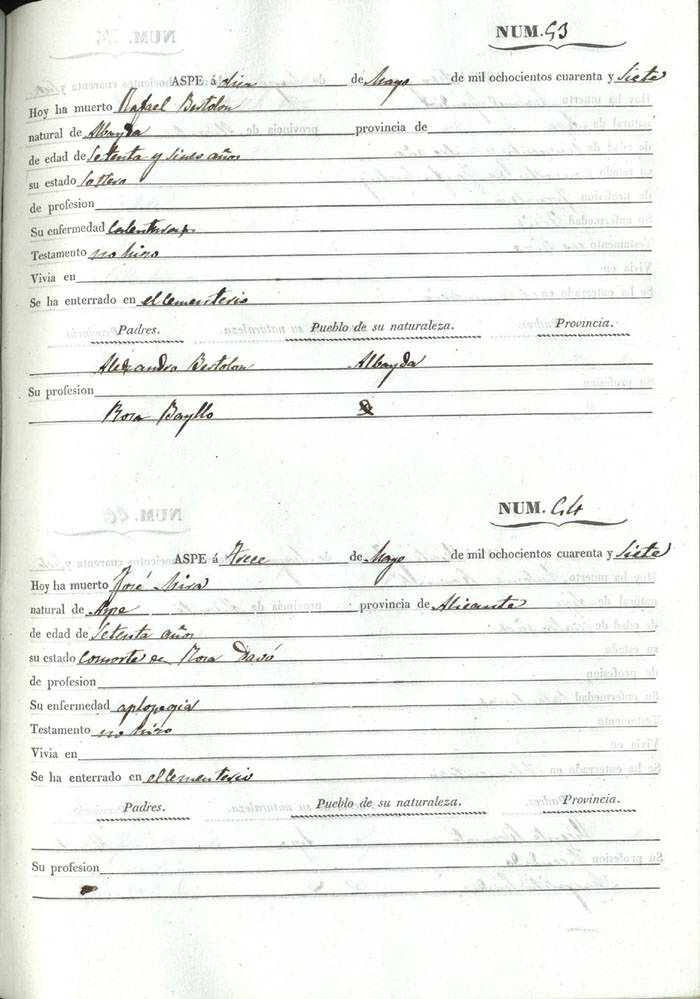 NUM. 53
ASPE á diez de Mayo de mil ochocientos cuarenta y Siete
Hoy ha muerto Rafael Bertolon
natural de Albayda provincia de
de edad de Setenta y cinco años
su estado Soltero
de profesion
Su enfermedad Calenturas
Testamento no hizo
Vivia en
Se ha enterrado en el Cementerio
Padres. Pueblo de su naturaleza. Provincia.
Alexandro Bertolon Albayda
Su profesion
Rosa Bayllo
NUM. 54
ASPE á Trece de Mayo de mil ochocientos cuarenta y Siete
Hoy ha muerto José
natural de Aspe provincia de Alicante
de edad de Setenta años
su estado Consorte de Rosa Davó
de profesion
Su enfermedad aplopegia
Testamento no hizo
Vivia en
Se ha enterrado en el Cementerio
Padres. Pueblo de su naturaleza. Provincia.
Su profesion